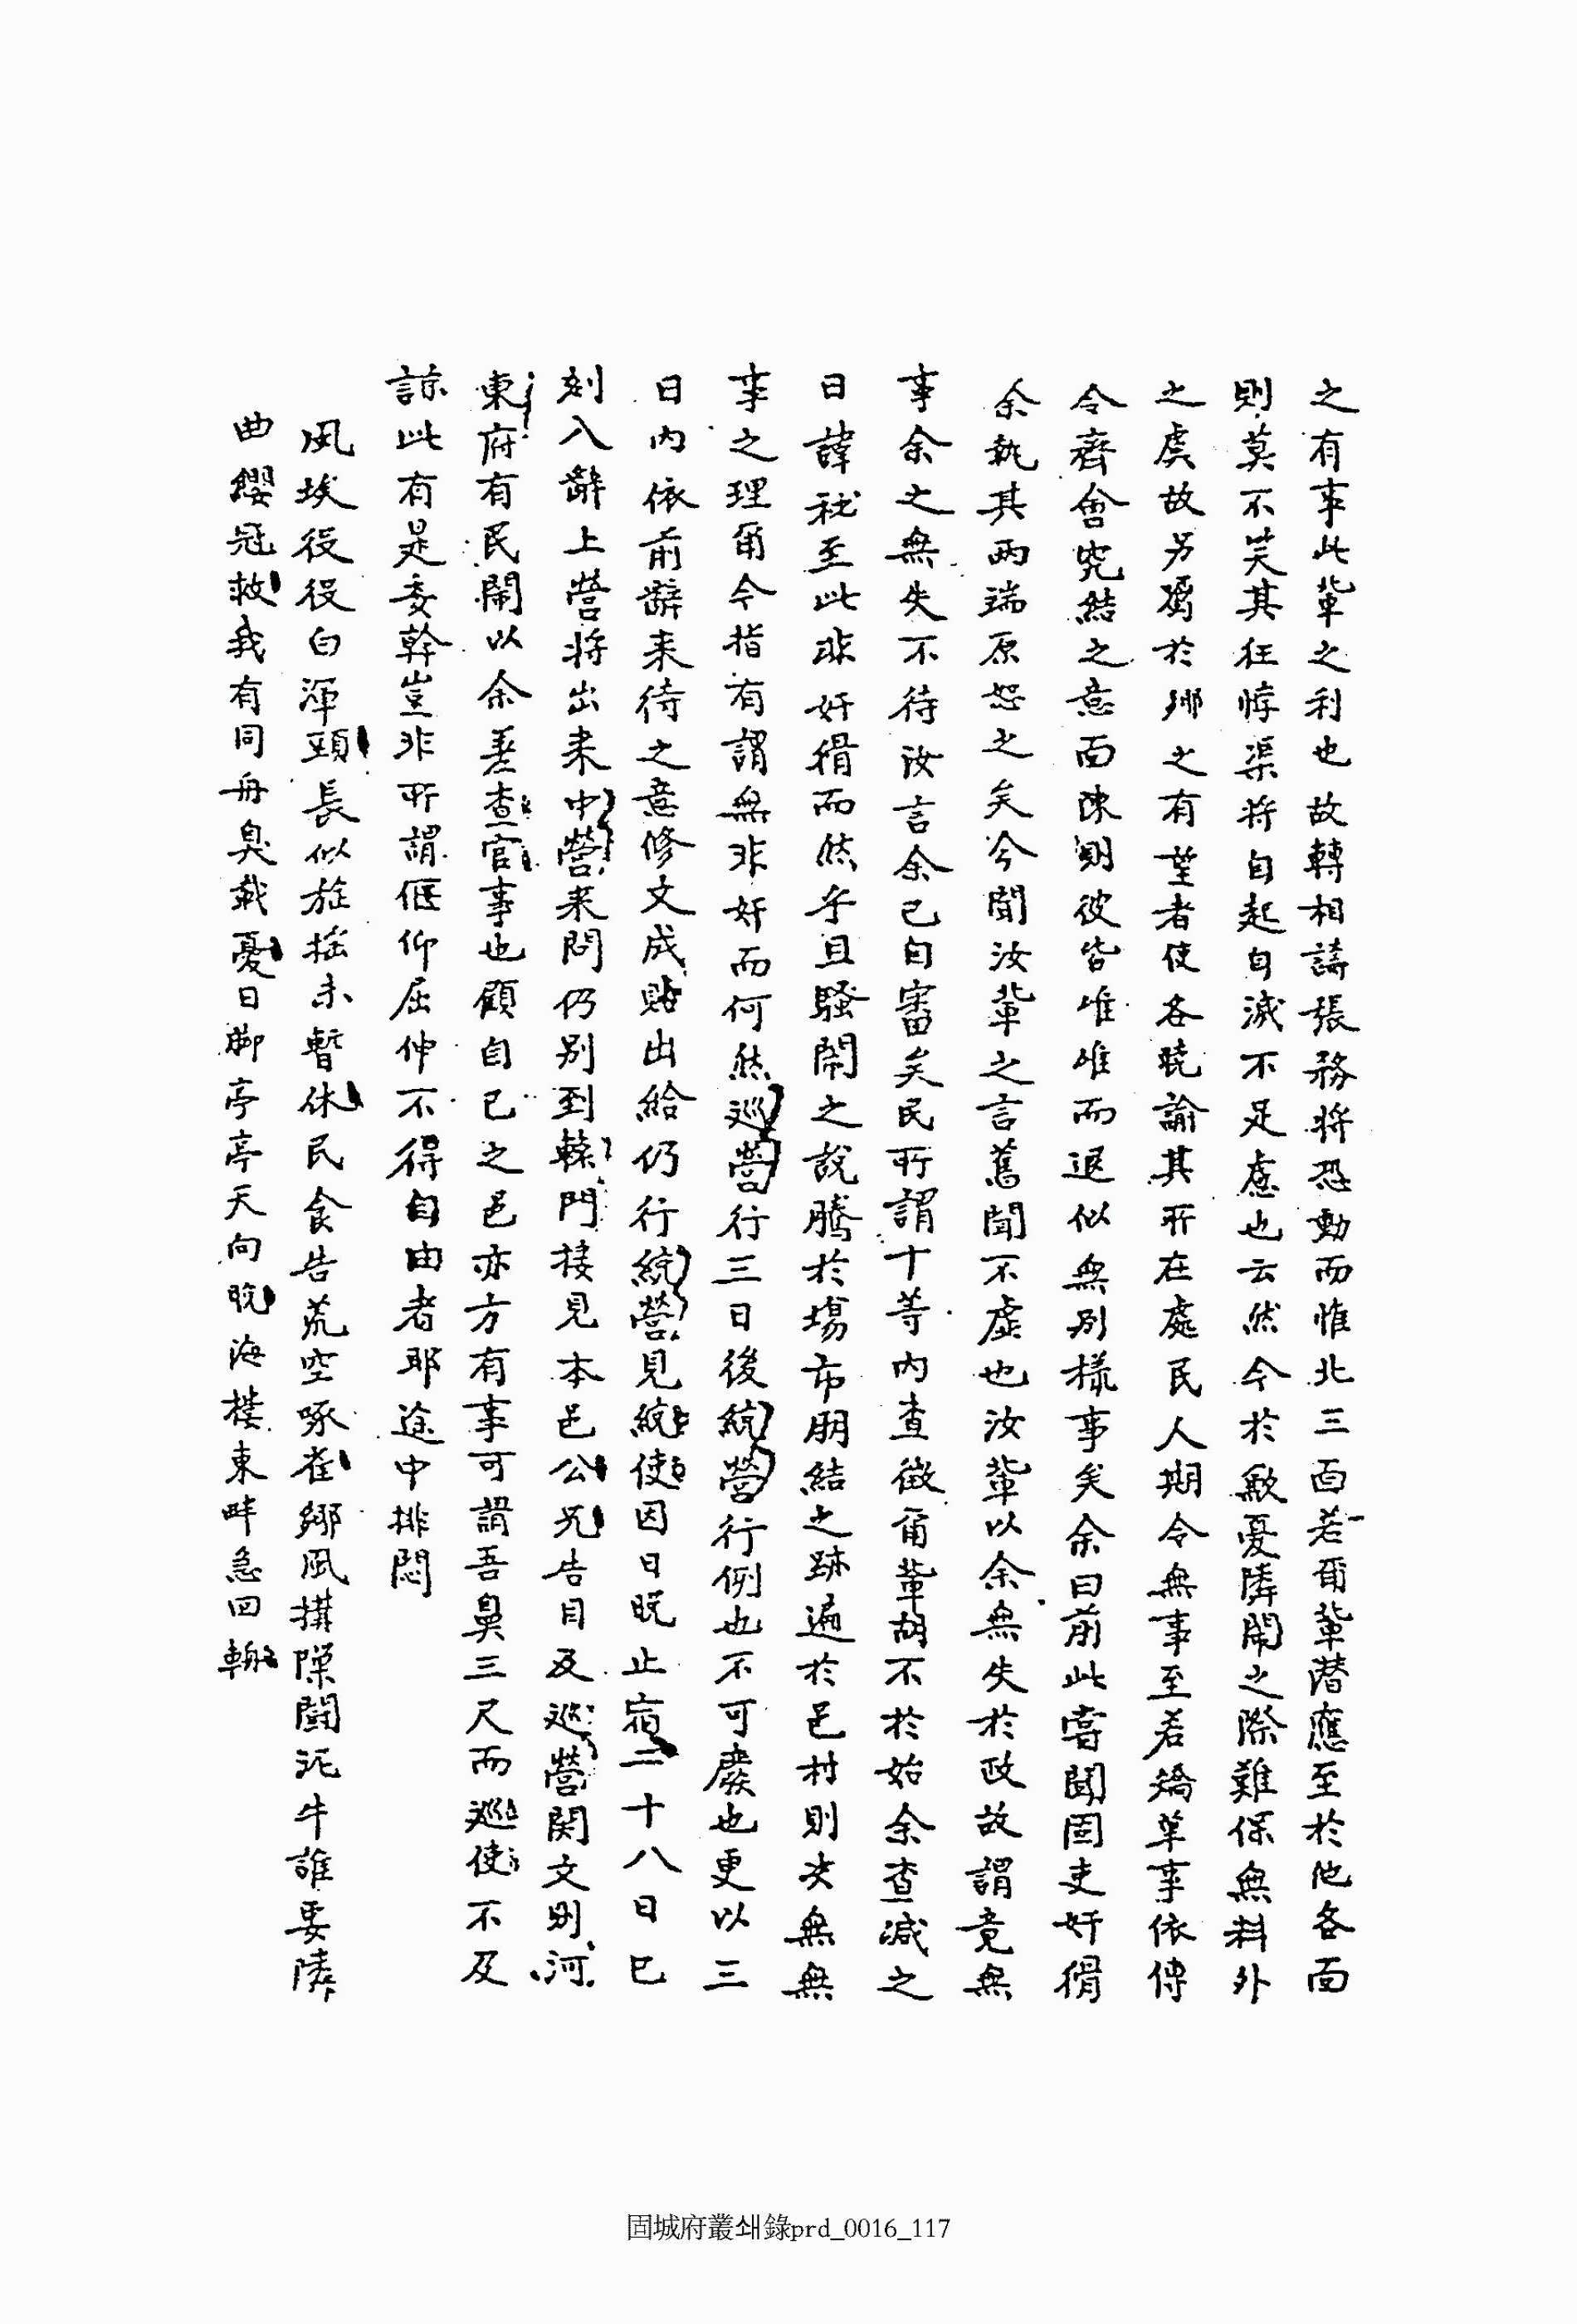 之有事此輩之利也故轉相譸張務將恐動而惟北三面若爾輩潛應至於他各面
則莫不笑其狂悖渠將自起自滅不足慮也云然今於敝憂隣鬧之際難保無料外
之虞故另屬於鄕之有望者使各曉諭其所在處民人期令無事至若矯革事依傳
令齊會究結之意面陳則彼皆唯唯而退似無別樣事矣余曰前此嘗聞固吏奸猾
余執其兩端原恕之矣今聞汝輩之言舊聞不虛也汝輩以余無失於政故謂竟無
事余之無失不待汝言余已自審矣民所謂十等內查徵爾輩胡不於始余查減之
日諱秘至此非奸猾而然乎且騷鬧之說騰於場市朋結之跡遍於邑村則決無無
事之理爾今指有謂無非奸而何然巡營行三日後統營行例也不可廢也更以三
日內依前辭來待之意修文成貼出給仍行統營見統使因日旣止宿二十八日巳
刻入辭上營將出來中營來問仍別到轅門接見本邑公兄告目及巡營関文則河
東府有民鬧以余差查官事也顧自己之邑亦方有事可謂吾鼻三尺而巡使不及
諒此有是委幹豈非所謂偃仰屈伸不得自由者耶途中排悶
風埃役役白渾頭長似旌搖未暫休民食告荒空啄雀鄕風搆隙鬪泥牛誰要隣
曲纓冠救我有同舟臭載憂日脚亭亭天向晩海樓東畔急回輈
固城府叢쇄錄prd_0016_117